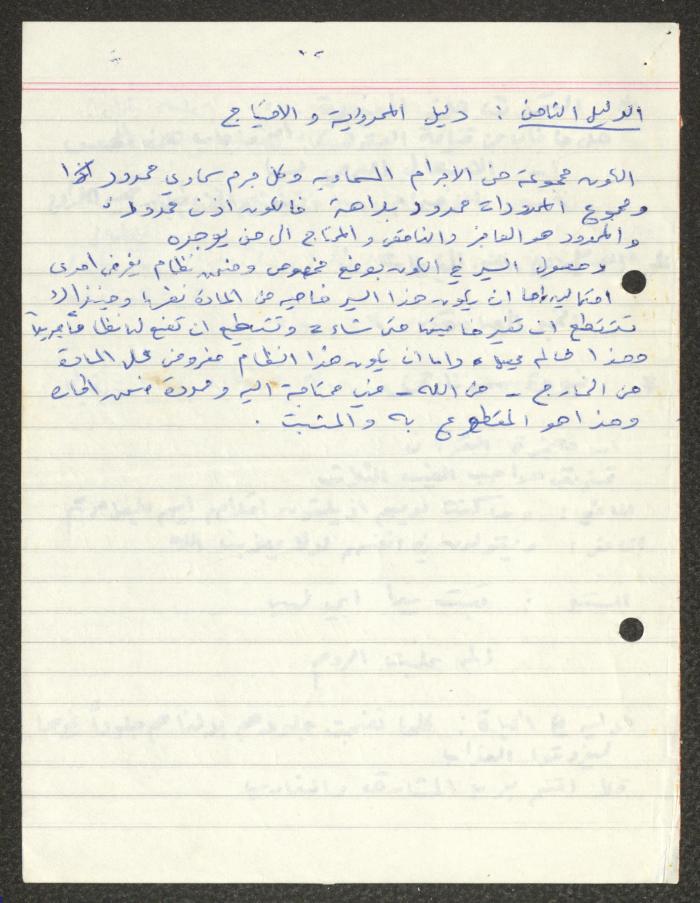 الدليل الثامن : دليل المحدودية و الاحتياج
الكون مجموعة من الاجرام السماويه وكل جرم سماوي محدود اذا
ومجموع المحدودات محدود بداهة فالكون اذن محدود
والمحدود هو العاجز والناقص والمحتاج الى من يوجده
وحصول السير في الكون بوضع مخصوص وضمن نظام يفرض احدى
احتمالين اما ان يكون هذا السير خاصيه من المادة نفسها وحينذاك
تستطيع ان تغير خاصيتها متى شاءت وتستطيع ان تضع لها نظاما جديداً
وهذا مالم يحصل واما ان يكون هذا النظام مفروض على المادة
من الخارج - من الله - فهي محتاجة اليه ومحدودة ضمن
وهذا هو المقطوع به والمثبت .